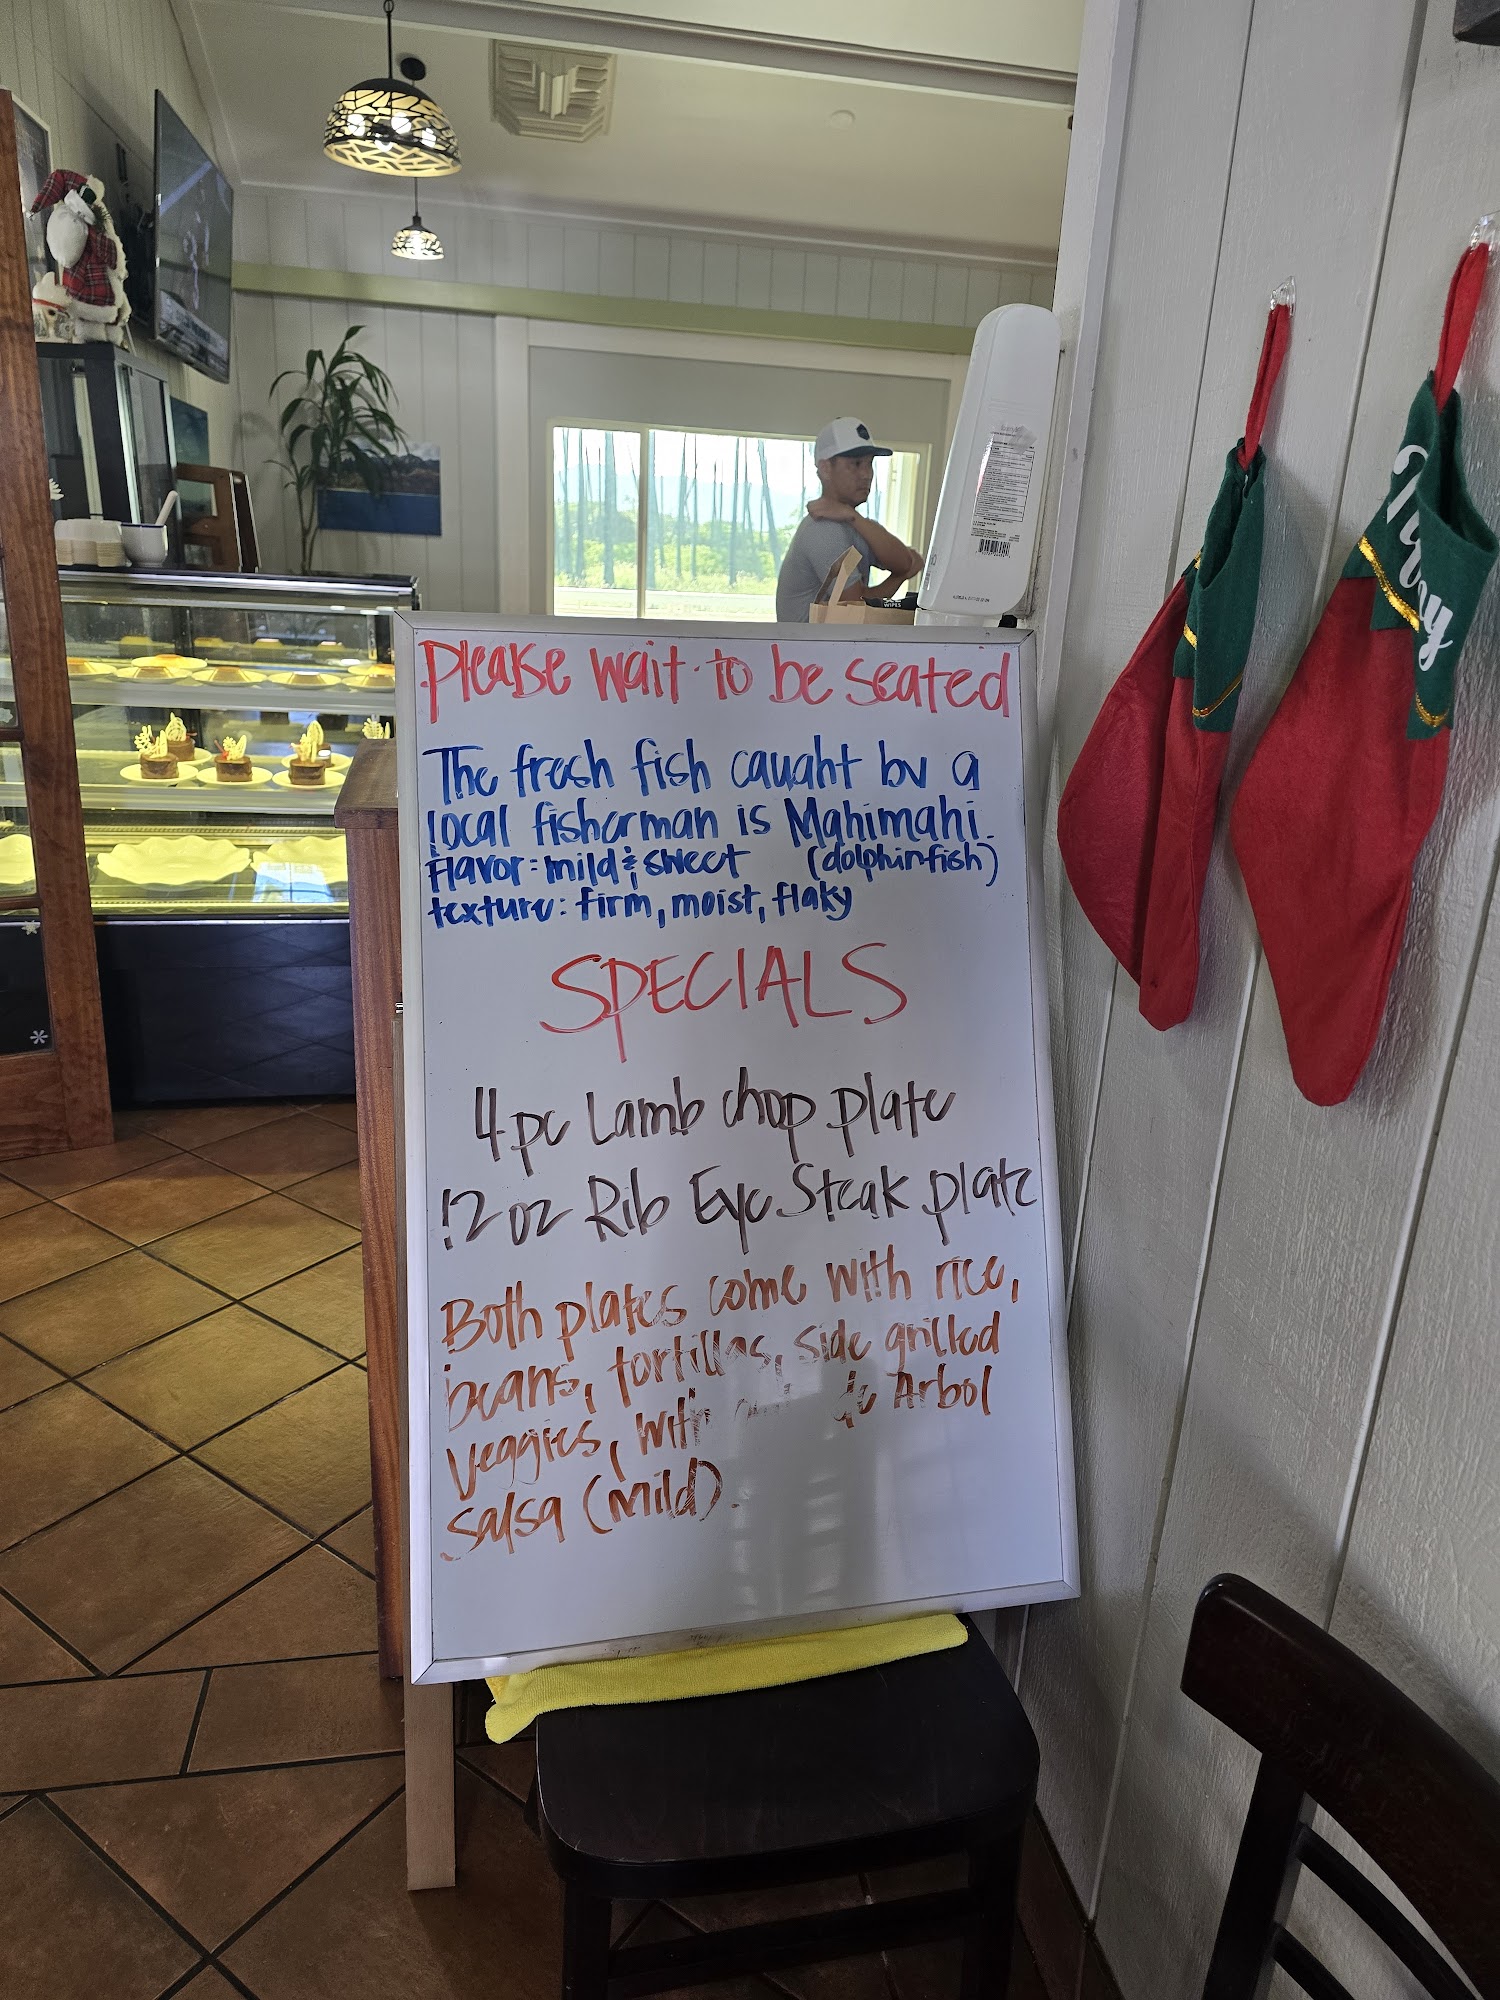 Please wait to be seated
The fresh fish caught by a
local fisherman is Mahimahi.
flavor: mild & sweet (dolphinfish)
texture: firm, moist, flaky
SPECIALS
4pc Lamb chop plate
12oz Rib Eye Steak plate
Both plates come with rice,
beans, tortillas, side grilled
veggies, with de Arbol
salsa (mild).
WIPES